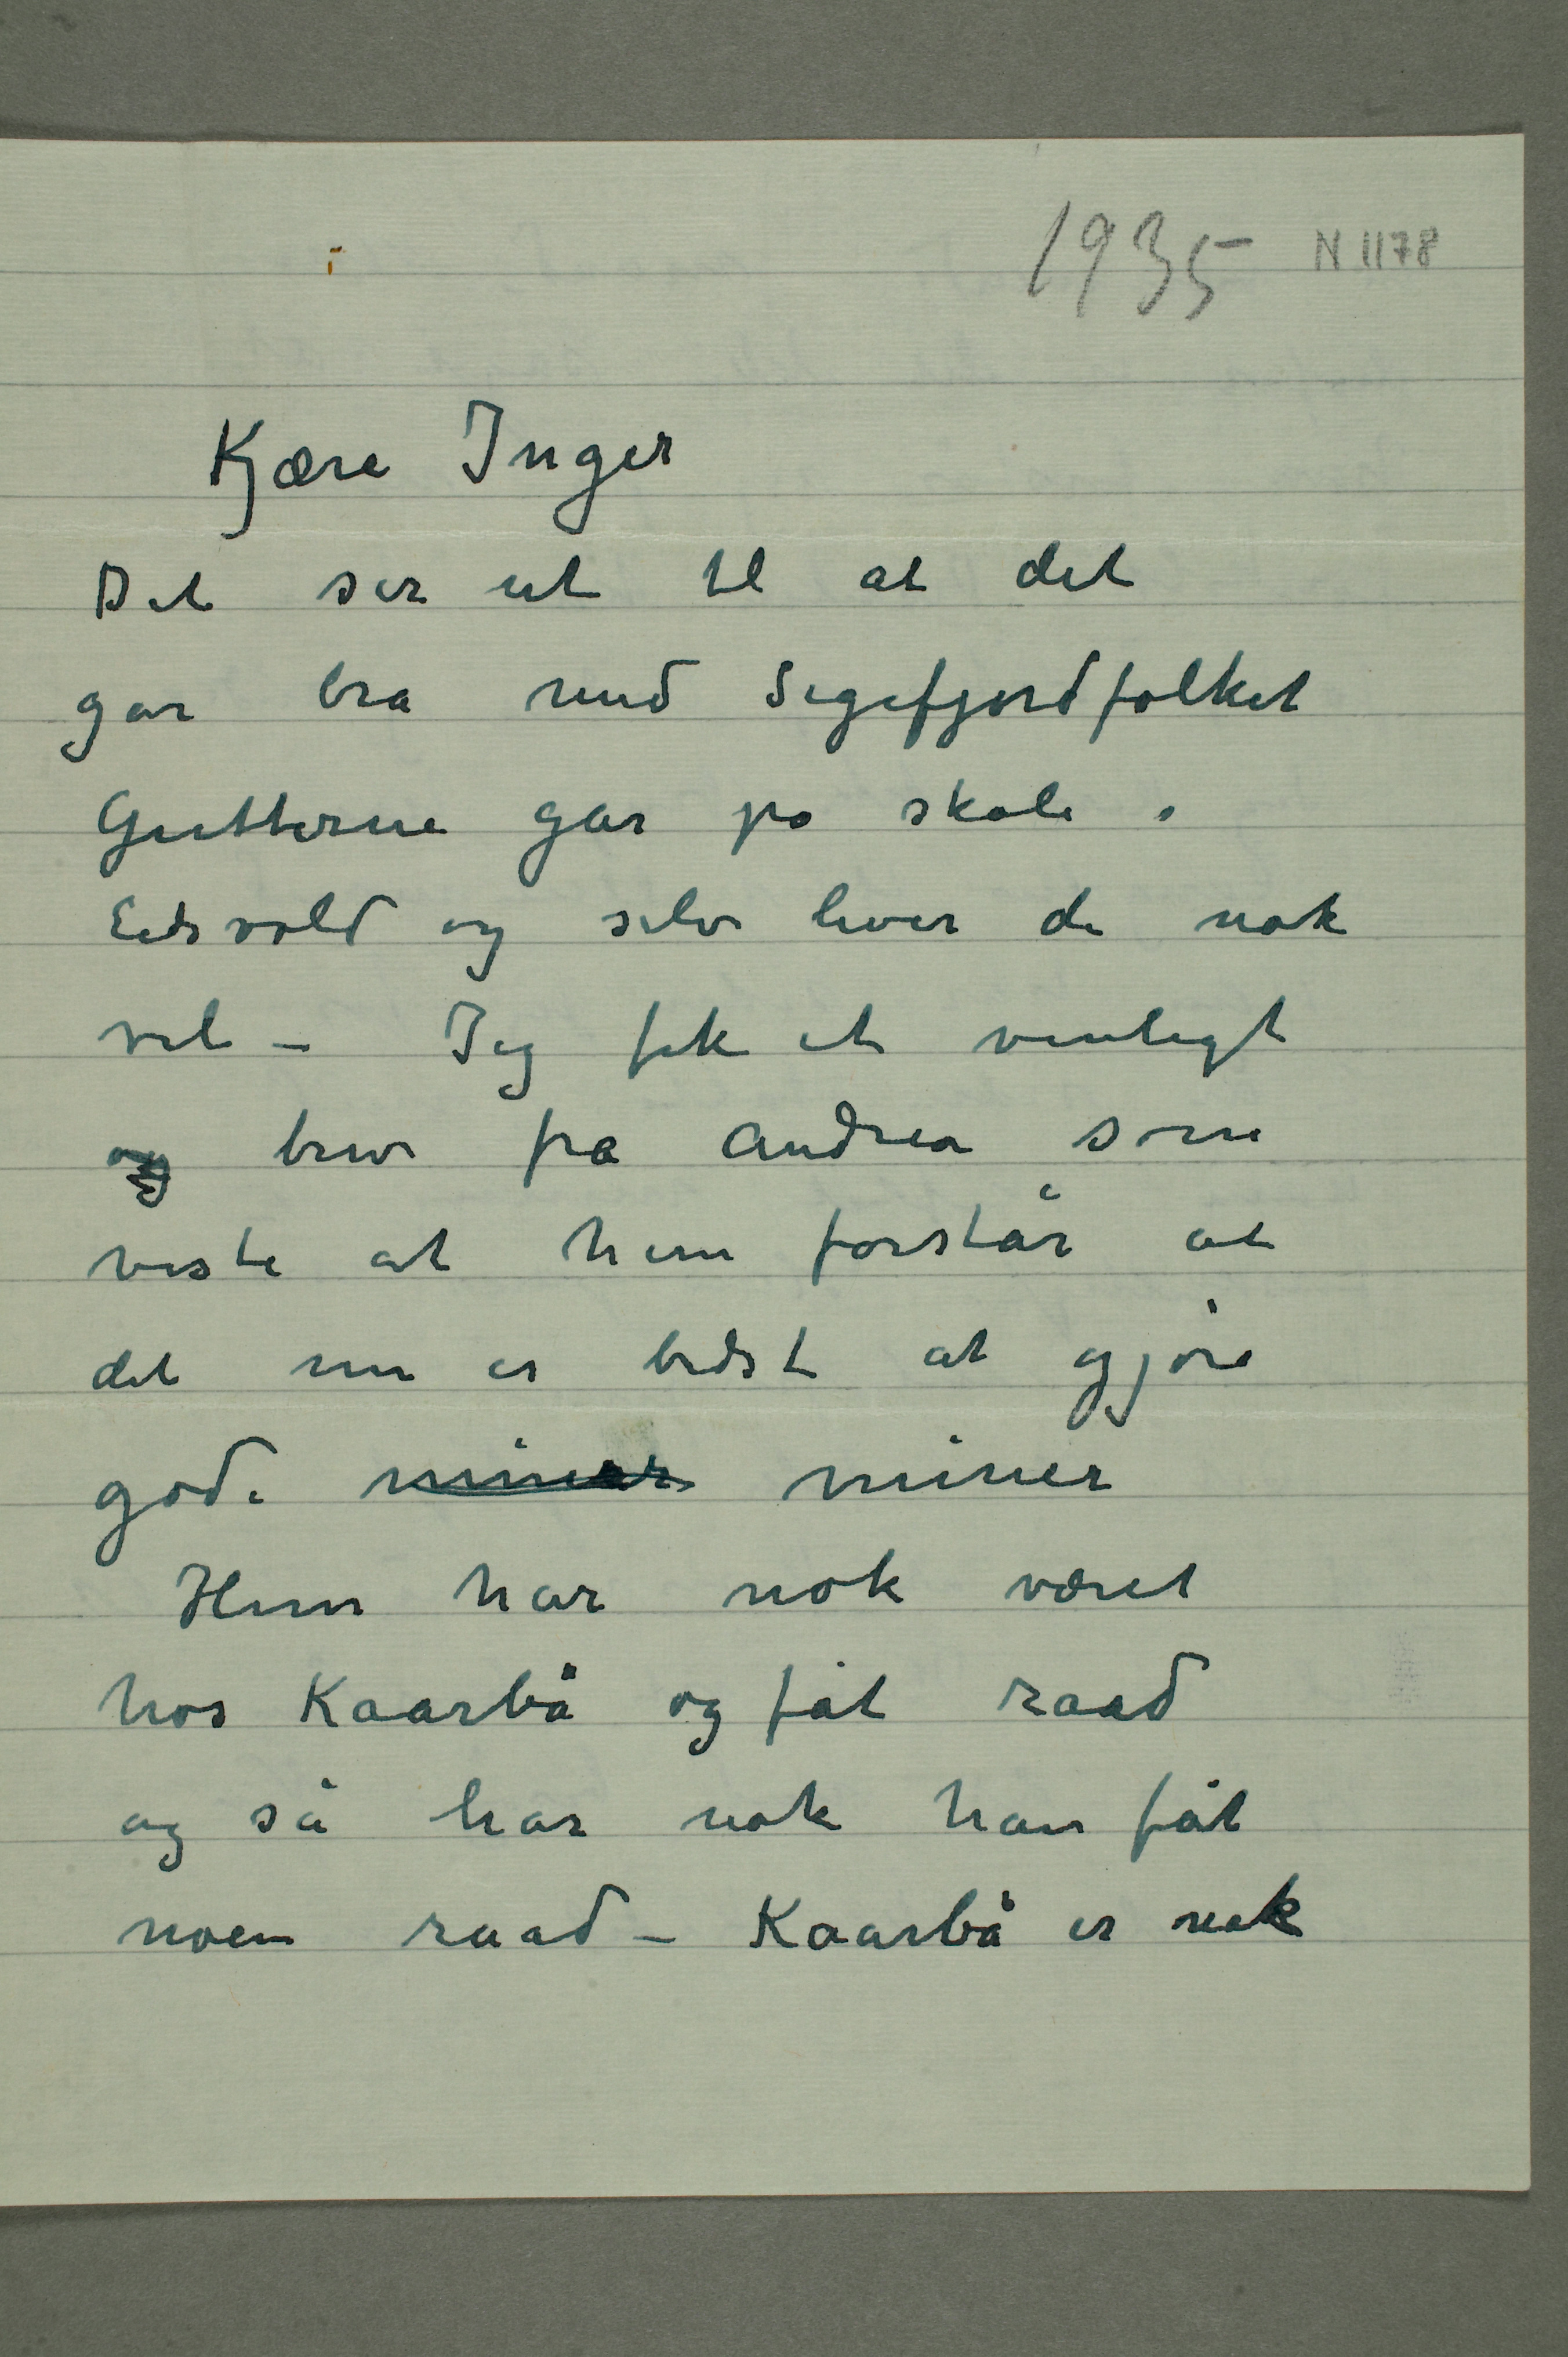 1935 N 1178
Kjære Inger
Det ser ut til at det
gar bra med Sigefjordfolket
Gutterne gar pa skole i
Eidsvold og selv lever de nok
vel – Jeg fik et venligt
og brev fra Andrea som
viste at hun forstår at
det nu er bedst at gjøre
gode miner miner
Hun har nok været
hos Kaarbø og fåt raad
og så har nok han fåt
noen raad – Kaarbø er nok